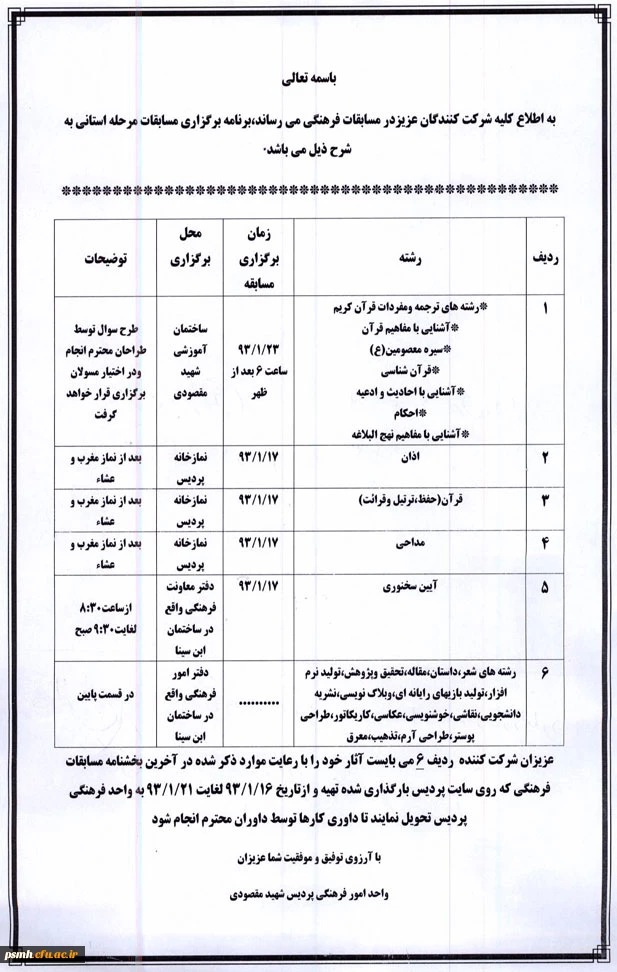 باسمه تعالی
به اطلاع کلیه شرکت کنندگان عزیزدر مسابقات فرهنگی می رساند،برنامه برگزاری مسابقات مرحله استانی به
شرح ذیل می باشد.
ردیف
رشته
زمان
برگزاری
مسابقه
محل
برگزاری
توضیحات
۱
*رشته های ترجمه ومفردات قرآن کریم
*آشنایی با مفاهیم قرآن
*سیره معصومین(ع)
*قرآن شناسی
*آشنایی با احادیث و ادعیه
*احکام
*آشنایی با مفاهیم نهج البلاغه
۹۳/۱/۲۳
ساعت ۶ بعد از
ظهر
ساختمان
آموزشی
شهید
مقصودی
طرح سوال توسط
طراحان محترم انجام
ودر اختیار مسولان
برگزاری قرار خواهد
گرفت
۲
اذان
۹۳/۱/۱۷
نمازخانه
پردیس
بعد از نماز مغرب و
عشاء
۳
قرآن(حفظ،ترتیل وقرائت)
۹۳/۱/۱۷
نمازخانه
پردیس
بعد از نماز مغرب و
عشاء
۴
مداحی
۹۳/۱/۱۷
نمازخانه
پردیس
بعد از نماز مغرب و
عشاء
۵
آیین سخنوری
۹۳/۱/۱۷
دفتر معاونت
فرهنگی واقع
در ساختمان
ابن سینا
ازساعت۸:۳۰
لغایت۹:۳۰صبح
۶
رشته های شعر،داستان،مقاله،تحقیق وپژوهش،تولید نرم
افزار،تولید بازیهای رایانه ای،وبلاگ نویسی،نشریه
دانشجویی،نقاشی،خوشنویسی،عکاسی،کاریکاتور،طراحی
پوستر،طراحی آرم،تذهیب،معرق
..........
دفتر امور
فرهنگی واقع
در ساختمان
ابن سینا
در قسمت پایین
عزیزان شرکت کننده ردیف ۶ می بایست آثار خود را با رعایت موارد ذکر شده در آخرین بخشنامه مسابقات
فرهنگی که روی سایت پردیس بارگذاری شده تهیه و ازتاریخ ۹۳/۱/۱۶ لغایت ۹۳/۱/۲۱ به واحد فرهنگی
پردیس تحویل نمایند تا داوری کارها توسط داوران محترم انجام شود
با آرزوی توفیق و موفقیت شما عزیزان
واحد امور فرهنگی پردیس شهید مقصودی
psmh.cfu.ac.ir